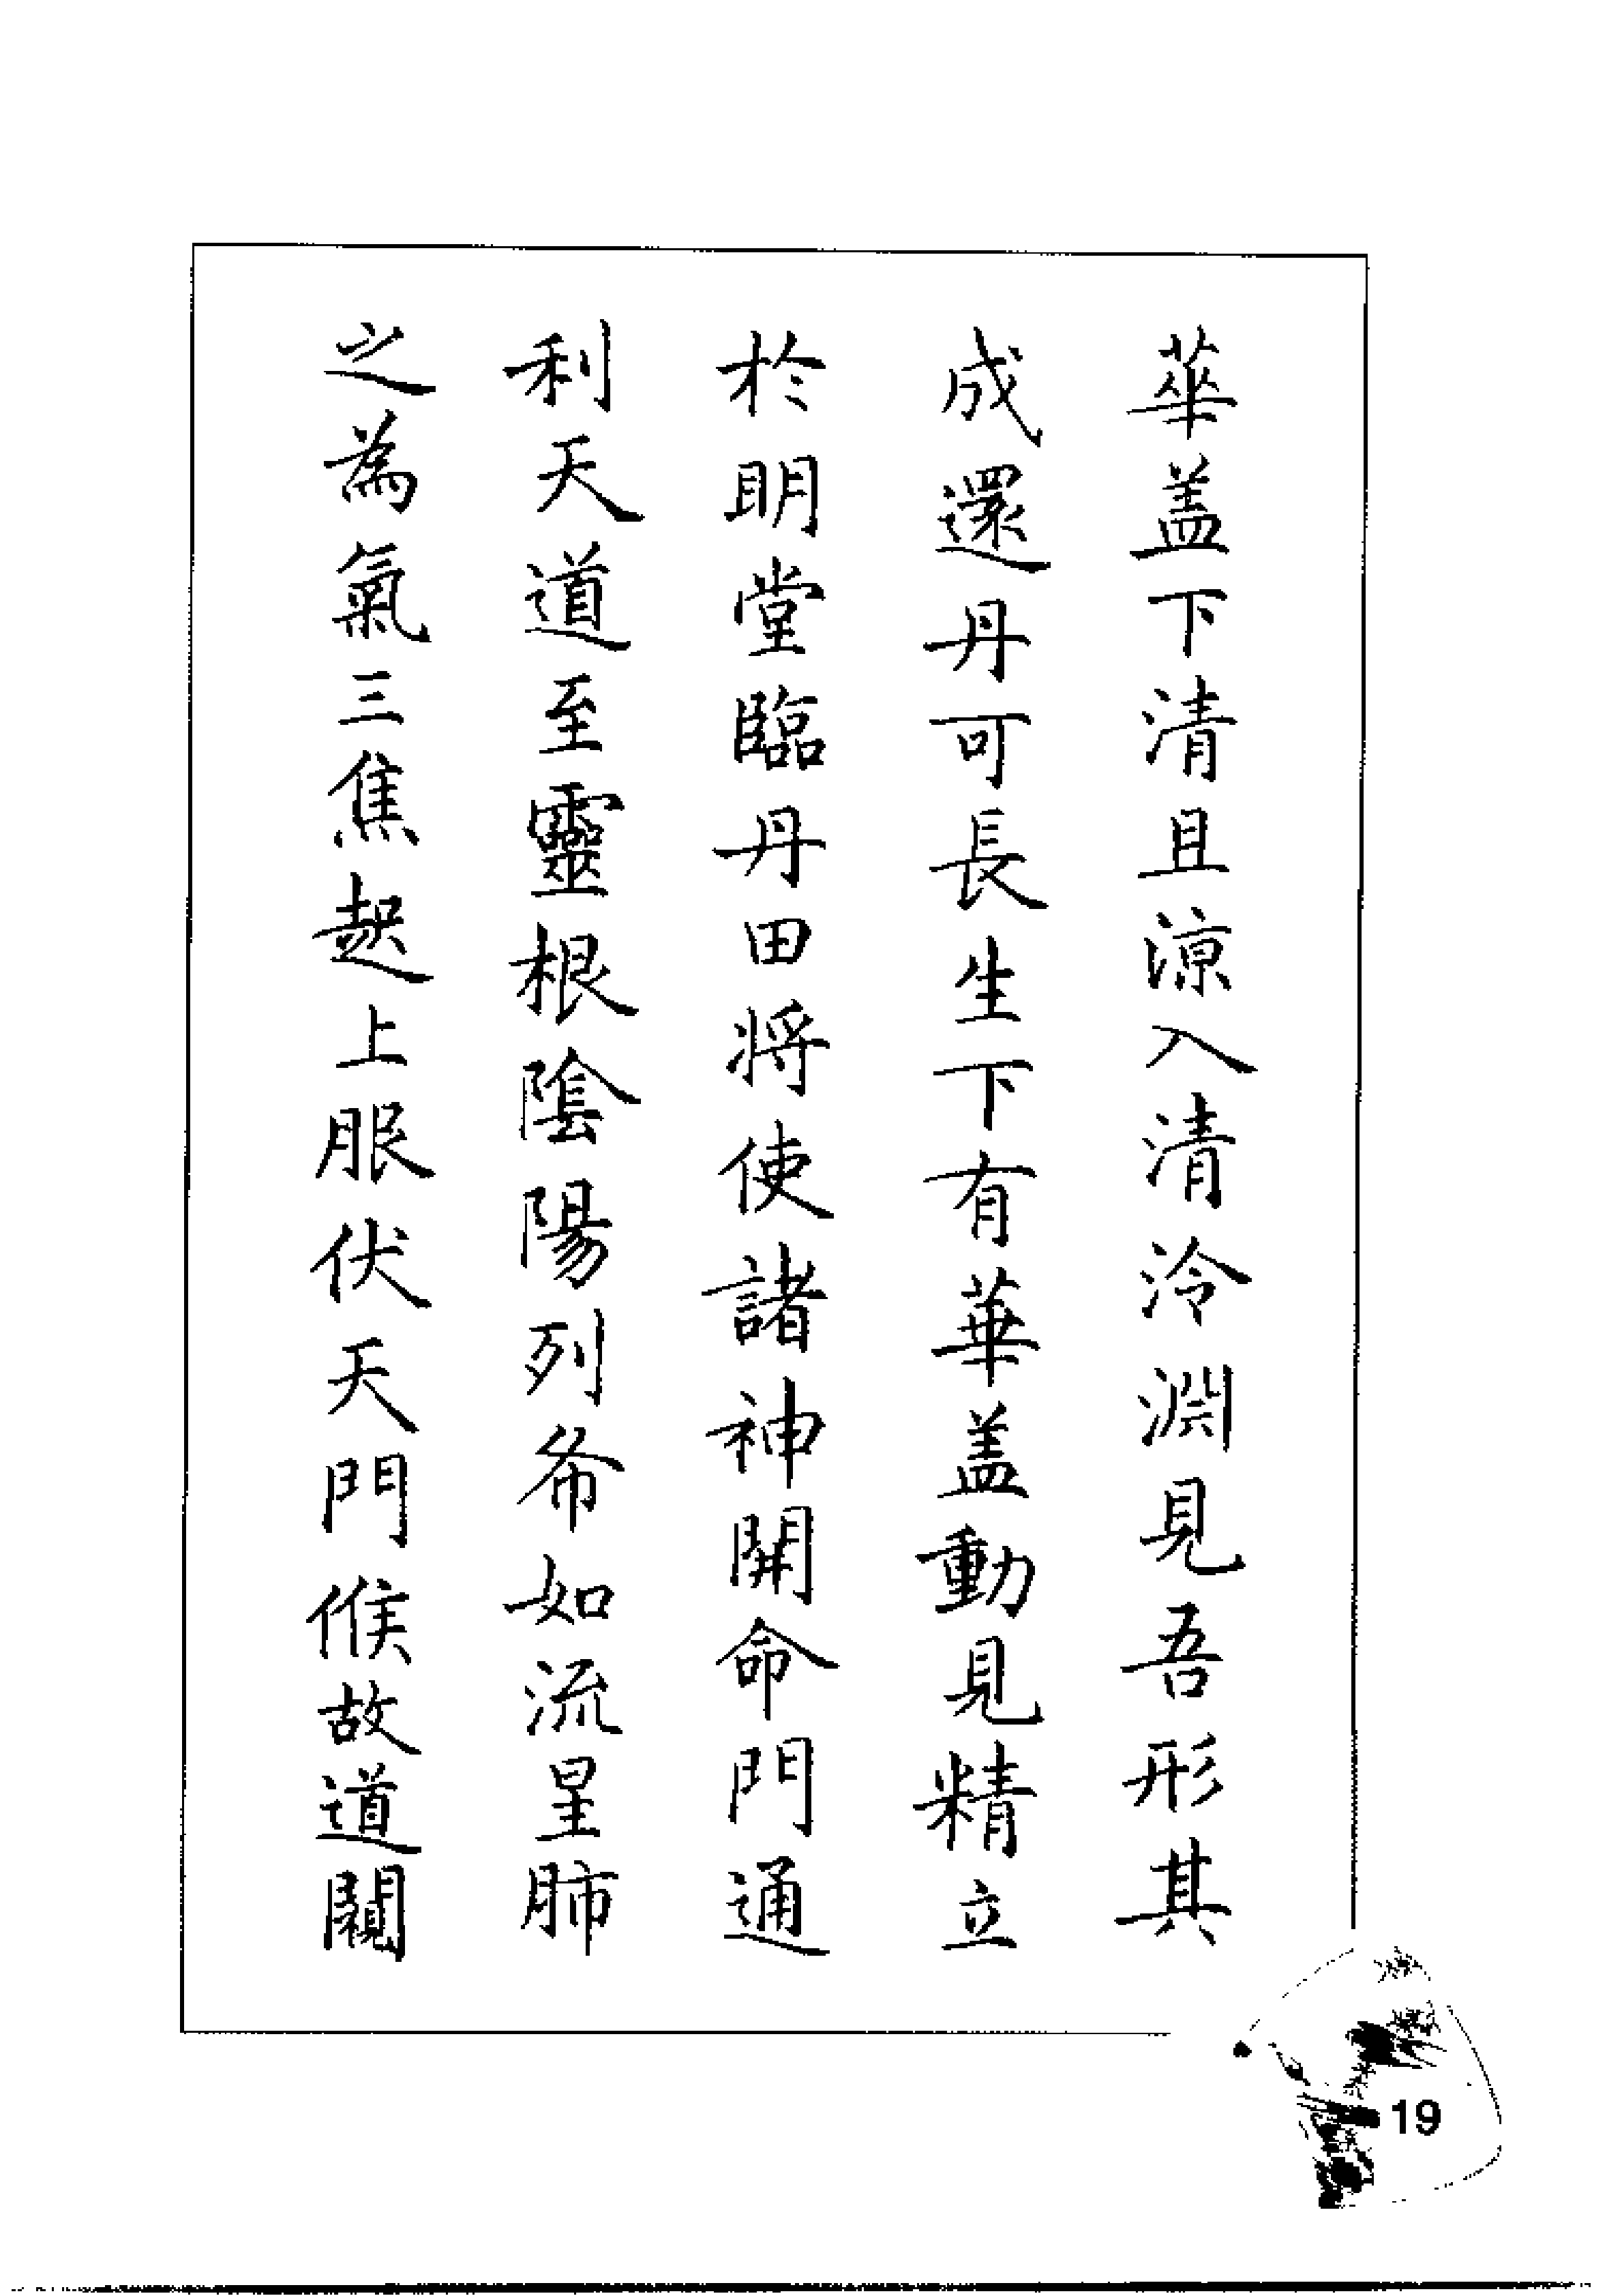 華盖下清且涼入清泠淵見吾形其
成還丹可長生下有華盖動見精立
於明堂臨丹田将使諸神開命門通
利天道至靈根陰陽列布如流星肺
之為氣三焦起上服伏天門候故道闚
19